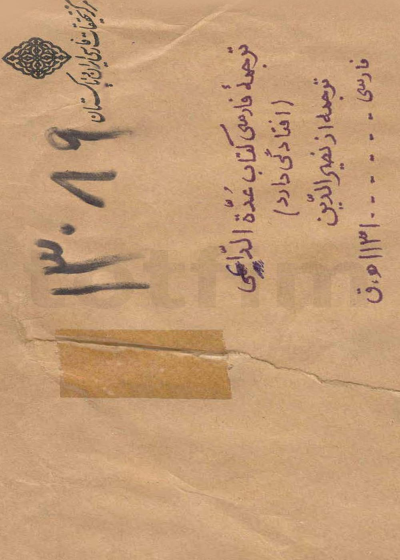 مرکز تحقیقات فارسی ایران و پاکستان
۱۳۰۸۹
ترجمهٔ فارسی کتاب عُدّة الدّاعی
(افتادگی دارد)
ترجمه از نصیرالدّین
فارسی - - - - - - ۱۱۳۱ه‍.ق